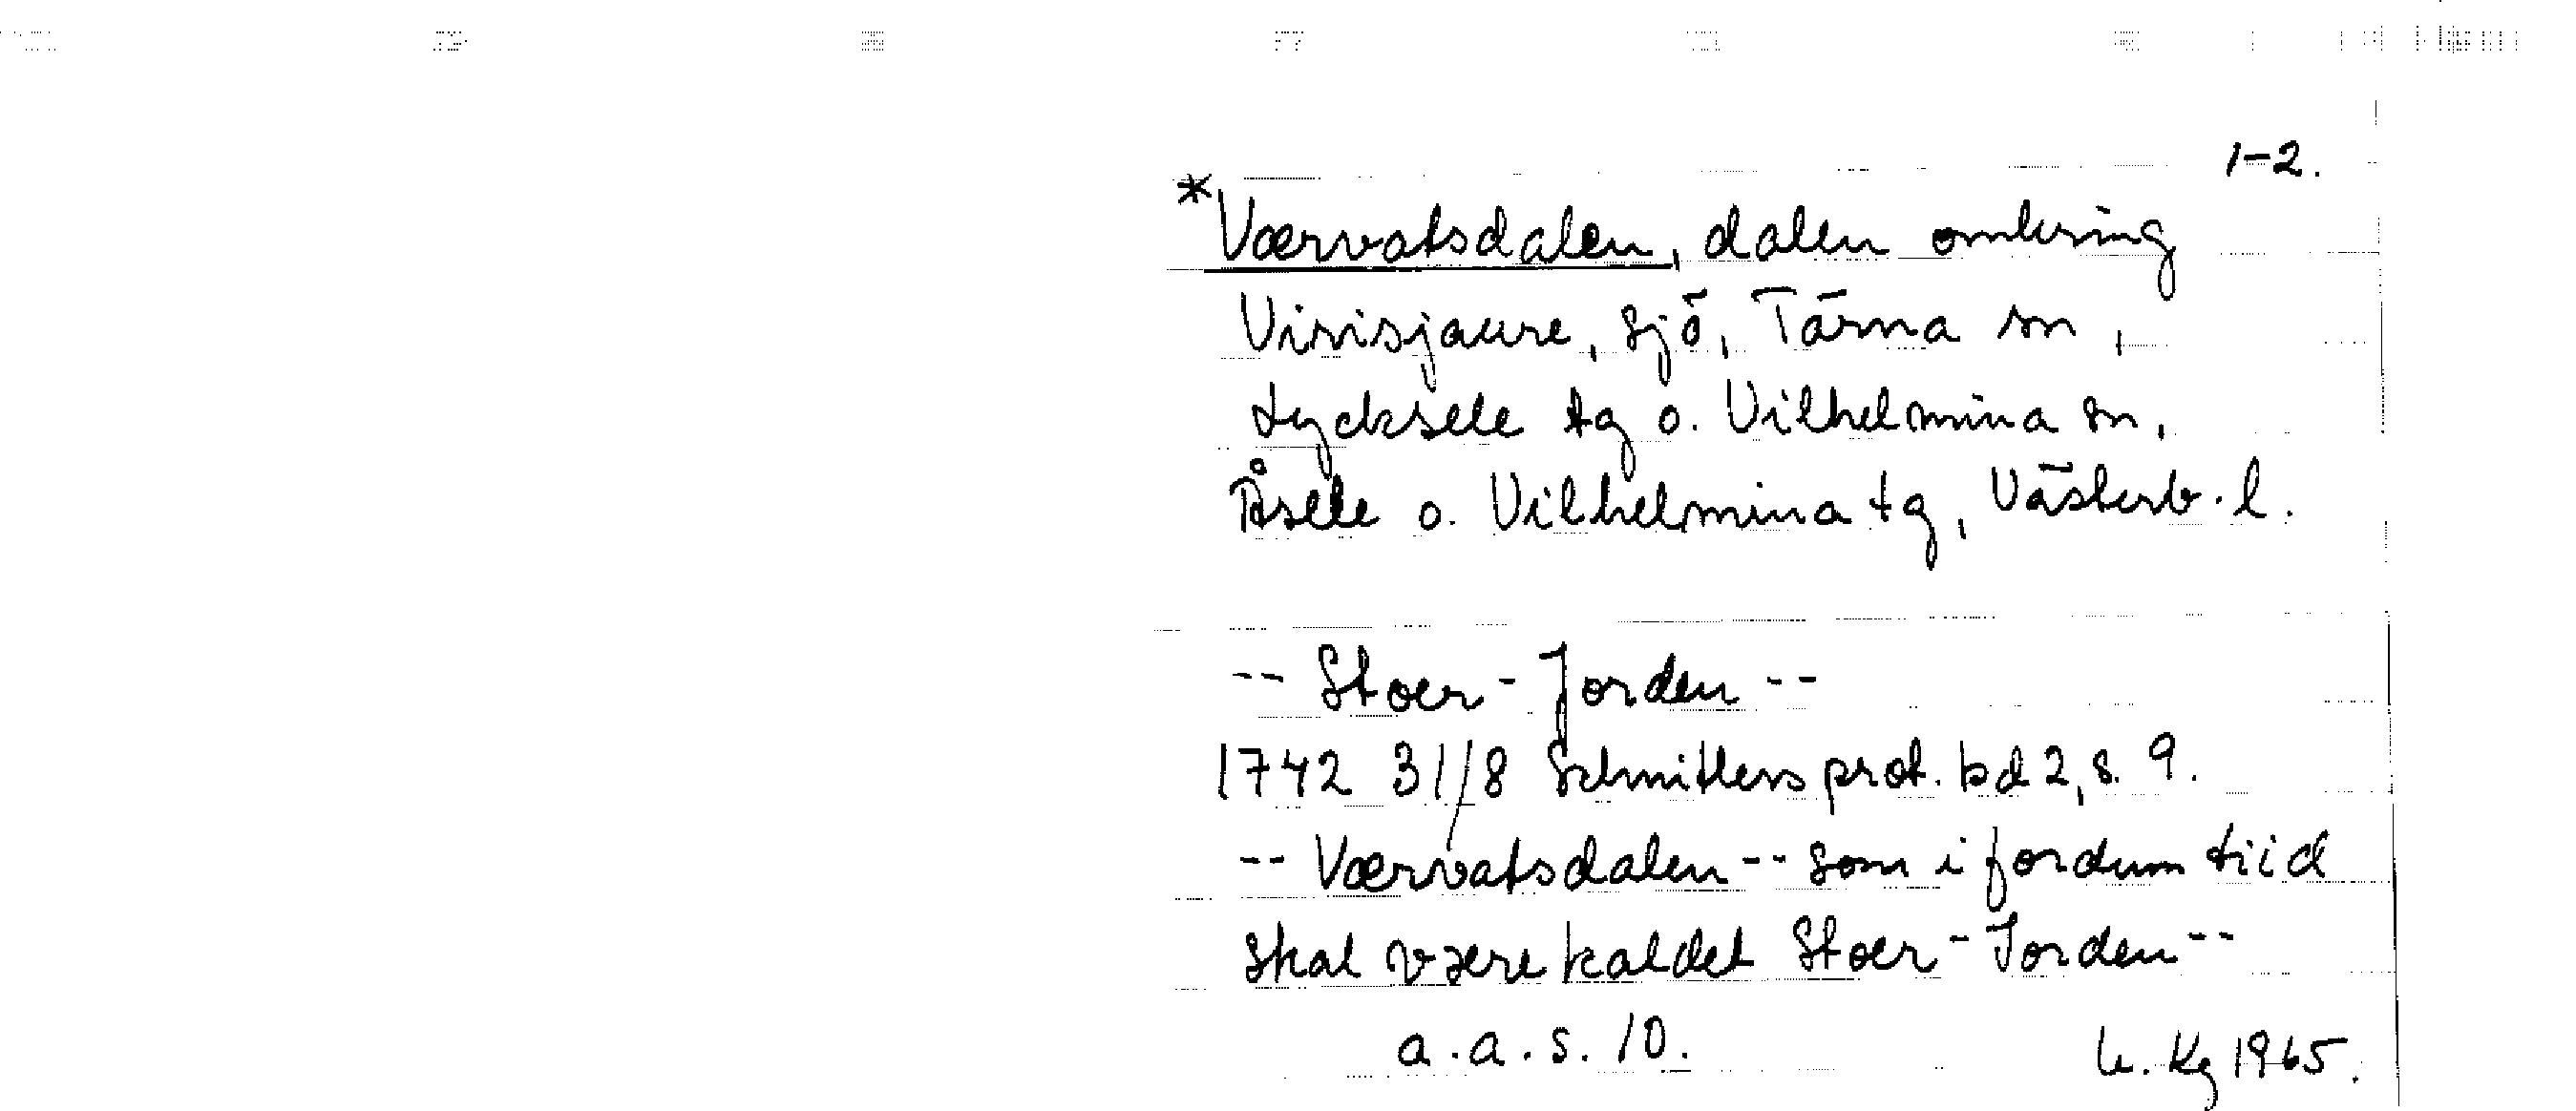 1-2.
*Værvatsdalen, dalen omkring
Virisjaure, sjö, Tärna sn,
Lycksele tg o. Vilhelmina sn,
Åsele o. Vilhelmina tg, Västerb. l.
-- Stoer-Jorden --
1742 31/8 Schnitlers prot. bd 2, s. 9.
-- Værvatsdalen -- som i fordum tiid
skal være kaldet Stoer-Jorden --
a.a.s. 10.
Kg 1965.